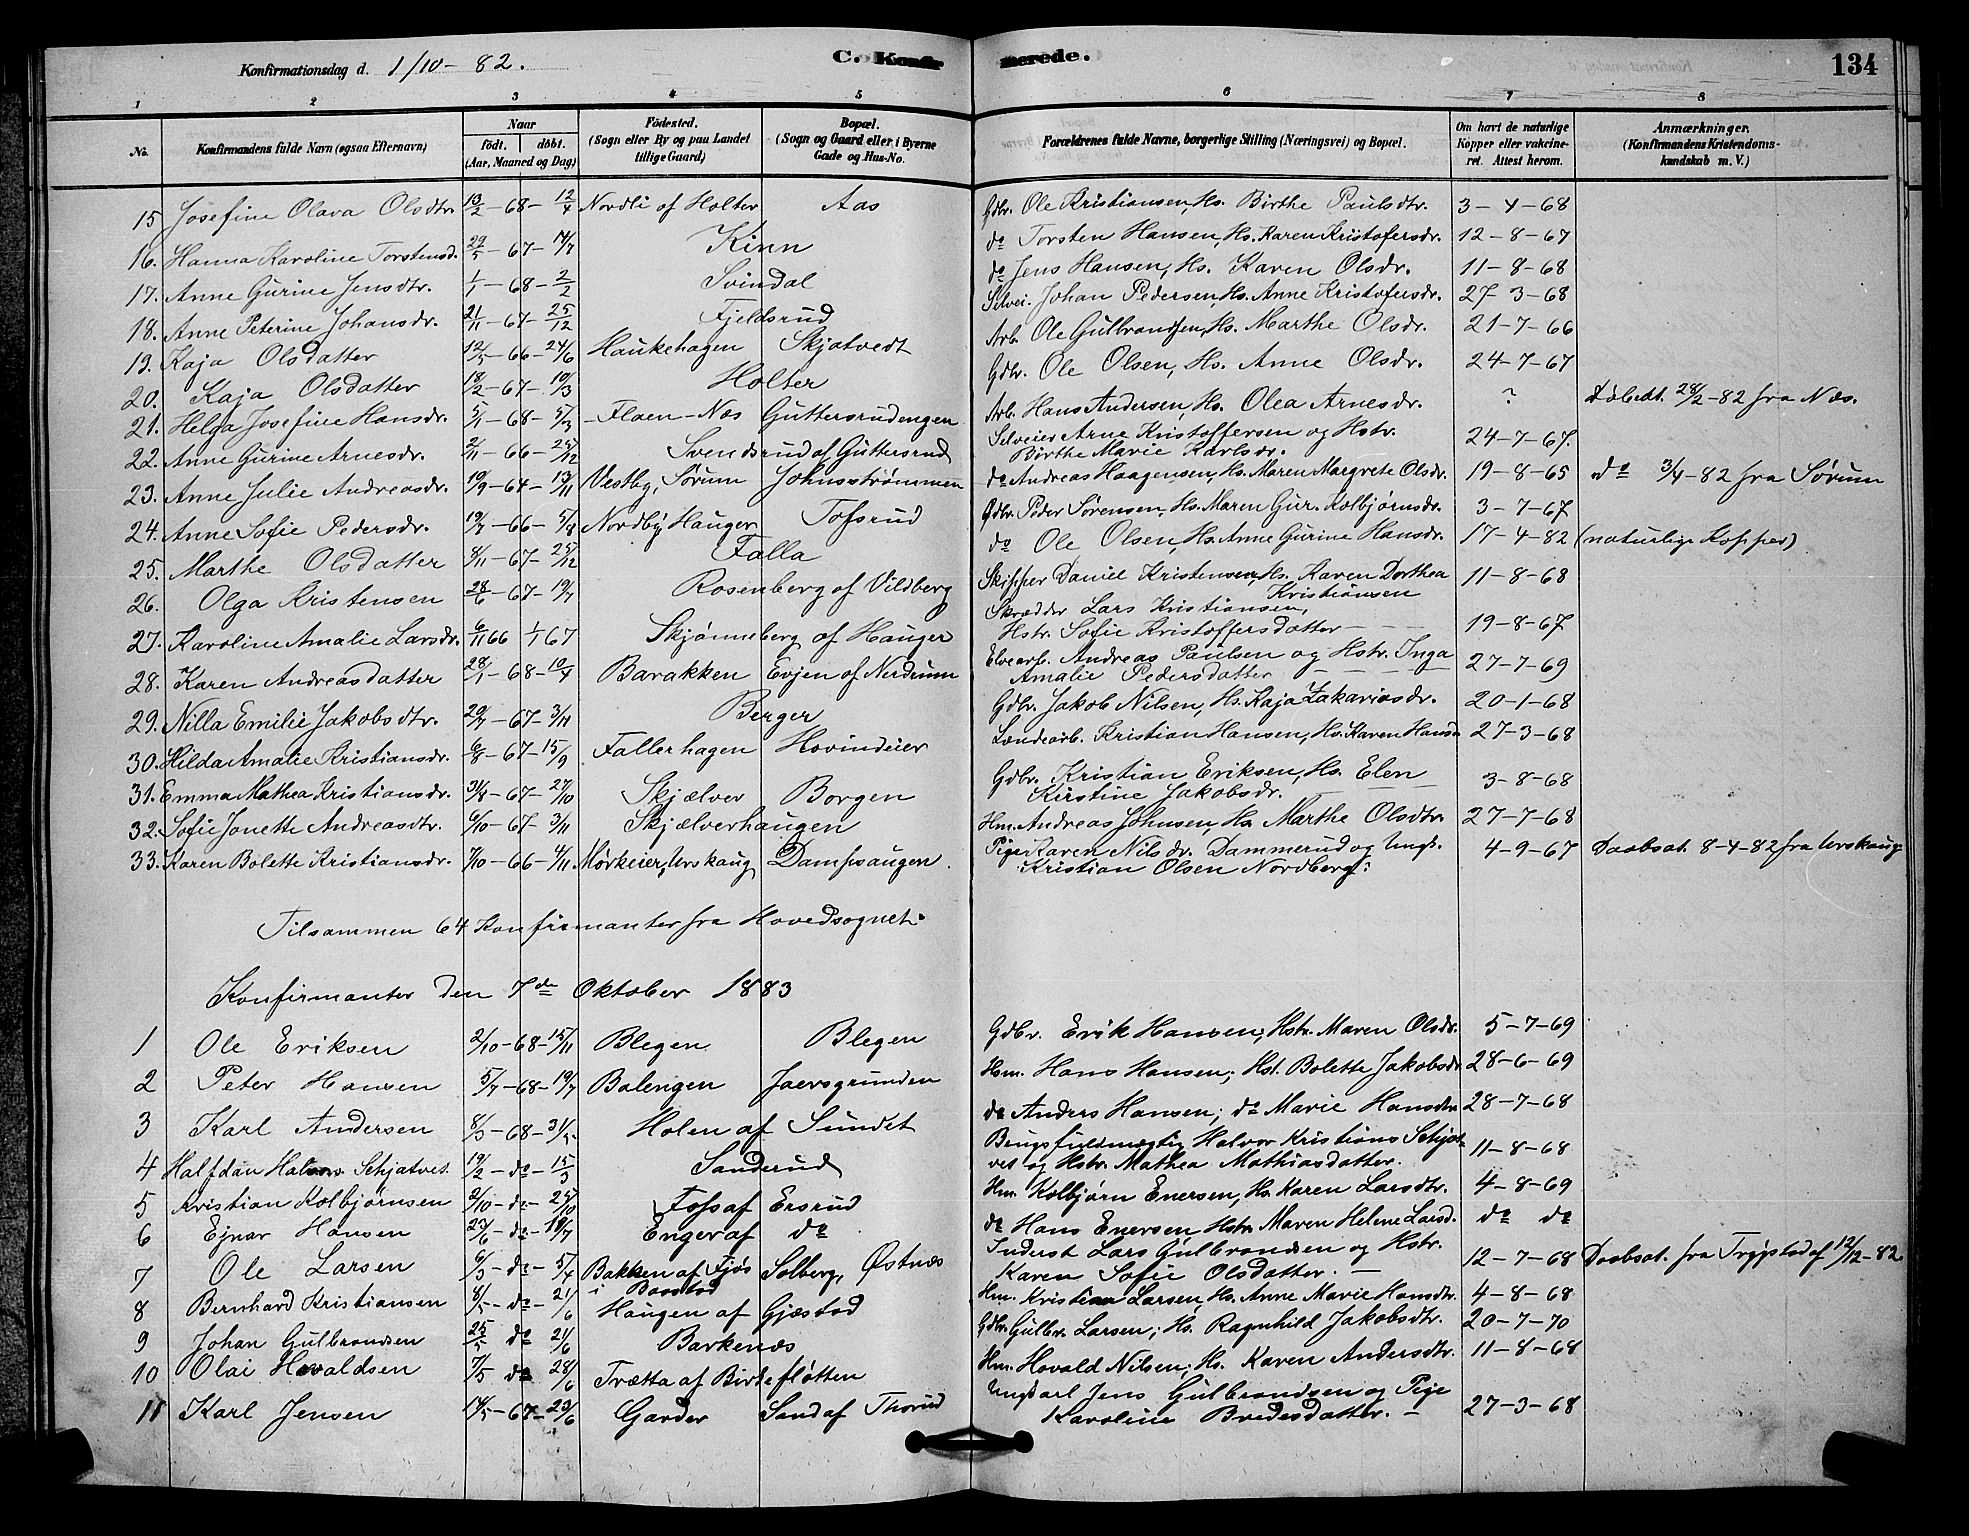 Konfirmationsdag d. 1/10 - 82. C. Konfirmerede. 134
1 2 3 4 5 6 7 8
No. Konfirmandens fulde Navn (ogsaa Efternavn) Naar födt. döbt. (Aar, Maaned og Dag) Födested. (Sogn eller By og paa Landet tillige Gaard) Bopæl. (Sogn og Gaard eller i Byerne Gade og Hus-No. Forældrenes fulde Navne, borgerlige Stilling (Næringsvei) og Bopæl. Om havt de naturlige Kopper eller vakcineret. Attest herom. Anmærkninger. (Konfirmandens Kristendomskundskab m. V.)
15 Josefine Olava Olsdtr. 13/2 - 68 - 12/4 Nordli af Holter Aas Gdbr. Ole Kristiansen, Hs. Birthe Paulsdtr. 3-4-68
16. Hanna Karoline Torstensd. 29/5 - 67 - 14/7 Kinn do Torsten Hansen, Hs. Karen Kristofersdr. 12-8-67
17. Anne Gurine Jensdtr. 1/1 - 68 - 2/2 Svindal do Jens Hansen, Hs. Karen Olsdr. 11-8-68
18. Anne Peterine Johansdr. 21/11 - 67 - 25/12 Fjeldsrud Selvei. Johan Pedersen, Hs. Anne Kristofersdr. 27-3-68
19. Kaja Olsdatter 12/5 - 66 - 24/6 Haukehagen Skjatvedt Arb. Ole Gulbrandsen, Hs. Marthe Olsdr. 21-7-66
20. Kaja Olsdatter 18/2 - 67 - 10/3 Holter Gdbr. Ole Olsen, Hs. Anne Olsdr. 24-7-67
21. Helga Josefine Hansdr. 5/1 - 68 - 5/3 Flaen-Næs Guttersrudengen Arb. Hans Andersen, Hs. Olea Arnesdr. ? Døbedt. 28/2-82 fra Næs.
22. Anne Gurine Arnesdr. 2/11 - 66 - 25/12 Svendsrud af Guttersrud Selveier Arne Kristoffersen og Hstr. Birthe Marie Karlsdr. 24-7-67.
23. Anne Julie Andreasdr. 19/9 - 64 - 13/11 Vestby, Sørum Johnsstrømmen do Andreas Haagensen, Hs. Maren Margrete Olsdr. 19-8-65 do 3/4-82 fra Sørum
24. Anne Sofie Pedersdr. 19/7 - 66 - 5/8 Nordby, Hauger Tofsrud Gdbr. Peder Sørensen, Hs. Maren Gur. Kolbjørnsdr. 3-7-67
25. Marthe Olsdatter 8/11 - 67 - 25/12 Falla do Ole Olsen, Hs. Anne Gurine Hansdr. 17-4-82 (naturlige Kopper)
26. Olga Kristensen 28/6 - 67 - 19/7 Rosenberg af Vildberg Skipper Daniel Kristensen, Hs. Karen Dorthea Kristiansen 11-8-68
27. Karoline Amalie Larsdr. 6/11 66 1/1 67 Skjønneberg af Hauger Skrædder Lars Kristiansen, Hstr. Sofie Kristoffersdatter 19-8-67
28. Karen Andreasdatter 28/1 - 68 - 10/4 Barakken Evjen af Nerdrum Elvearb. Andreas Paulsen og Hstr. Inga Amalie Pedersdatter 27-7-69
29. Nilla Emilie Jakobsdtr. 29/7 - 67 - 3/11 Berger Gdbr. Jakob Nilsen, Hs. Kaja Zakariasdr. 20-1-68
30. Hilda Amalie Kristiansdr. 6/8 - 67 - 15/9 Fallerhagen Hovindeier Lændearb. Kristian Hansen, Hs. Karen Hansd 27-3-68
31. Emma Mathea Kristiansdr. 31/8 - 67 - 27/10 Skjælver Borgen Gdbr. Kristian Eriksen, Hs. Elen Kirstine Jakobsdr. 3-8-68
32. Sofie Jonette Andreasdtr. 6/10 - 67 - 3/11 Skjælverhaugen Hm. Andreas Johnsen, Hs. Marthe Olsdtr. 27-7-68
33. Karen Bolette Kristiansdr. 7/10 - 66 - 4/11 Mørkeier, Urskaug Dampsaugen. Pige Karen Nilsdr. Dammerud og Ungk. Kristian Olsen Nordberg. 4-9-67 Daabsat. 8-4-82 fra Urskaug
Tilsammen 64 Konfirmanter fra Hovedsognet.
Konfirmanter den 7de Oktober 1883
1 Ole Eriksen 2/10 - 68 - 15/11 Blegen Blegen Gdbr. Erik Hansen, Hstr. Maren Olsdr. 5-7-69
2 Peter Hansen 5/7 - 68 - 19/7 Balengen Jaersgrunden Hsm. Hans Hansen; Hst. Bolette Jakobsdr 28-6-69
3 Karl Andersen 8/3 - 68 - 31/5 Holen af Sundet do Anders Hansen; do Marie Hansdtr 28-7-68
4 Halfdan Halvors. Schjatvet. 19/2 - do - 15/3 Sanderud Brugsfuldmægtig Halvor Kristians Schjatvet og Hstr. Mathea Mathiasdatter. 11-8-68
5 Kristian Kolbjørnsen 2/10 - do - 25/10 Foss af Ersrud Hm. Kolbjørn Enersen, Hs. Karen Larsdtr. 4-8-69
6 Ejnar Hansen 23/6 - do - 19/7 Enger af do do Hans Enersen Hstr. Maren Helene Larsd. do do
7 Ole Larsen 6/3 - do - 5/4 Bakken af Fjøs i Baastad Solberg, Østnæs Inderst Lars Gulbrandsen og Hstr. Karen Sofie Olsdatter. 12-7-68 Daabsat. fra Trygstad af 12/12-82.
8 Bernhard Kristiansen 8/5 - do - 21/6 Haugen af Gjæstad Hm. Kristian Larsen, Hs. Anne Marie Hansdtr. 4-8-68
9 Johan Gulbrandsen 25/5 do 21/6 Barkenæs Gdbr. Gulbr. Larsen; Hs. Ragnhild Jakobsdtr. 20-7-70
10 Olai Hovaldsen 7/5 do 28/6 Trætta af Birkefløtten Hm. Hovald Nilsen; Hs. Karen Andersdtr. 11-8-68
11 Karl Jensen 14/5 - 67 - 23/6 Garder Sand af Thorud Ungkarl Jens Gulbrandsen og Pige Karoline Bredesdatter. 27-3-68